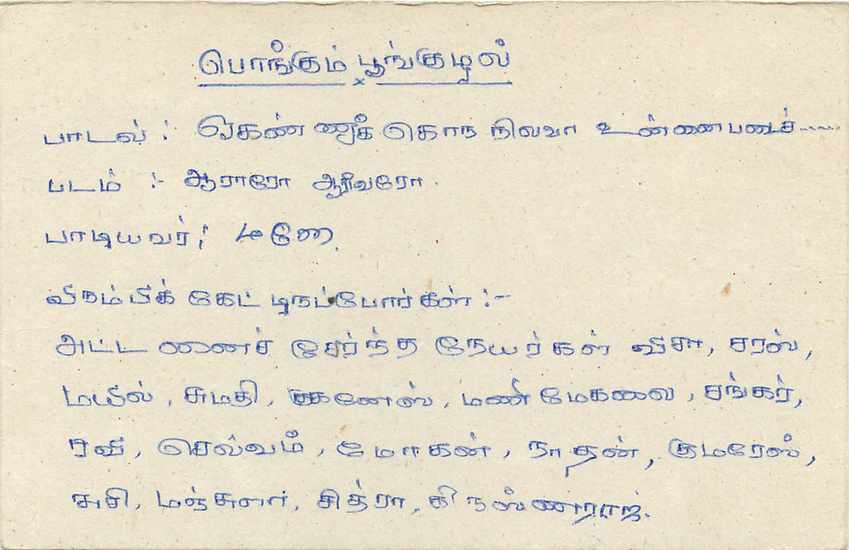 பொங்கும் பூங்குழல்
பாடல் : ஏகண்ணுக் கொரு நிலவா உன்னைபடைச்......
படம் :- ஆராரோ ஆரிவரோ.
பாடியவர் : மனோ.
விரும்பிக் கேட்டிருப்போர்கள் :-
அட்டணைச் சேர்ந்த நேயர்கள் விசா, சரஸ்,
மயில், சுமதி, கனேஸ், மணிமேகலை, சங்கர்,
ரவி, செல்வம், மோகன், நாதன், குமரேஸ்,
சுசி, மஞ்சுளா, சித்ரா, கிருஸ்ணராஜ்.